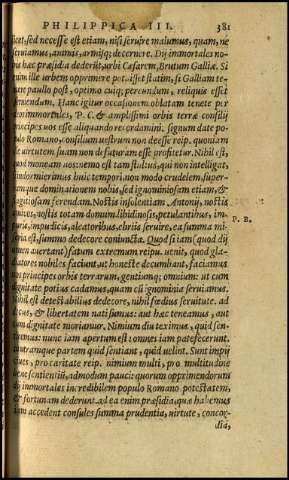 PHILIPPICA III. 381
sed necesse est etiam, nisi seruire malumus, quam, ne
seruiamus, animis, armisq; decernere. Dij immortales no-
hæc præsidia dederūt, urbi Cæsarem, Brutum Galliæ. Si
ille urbem opprimere potuisset statim, si Galliam te-
paullo post, optimo cuiq; pereundum, reliquis esset
seruiendum. Hanc igitur occasionem oblatam tenete per
immortales, P. C. & amplissimi orbis terræ consilij
principes uos esse aliquando recordamini. signum date po-
Romano, consilium uestrum non deesse reip. quoniam
uirtutem suam non defuturam esse profitetur. Nihil est,
quod moneam uos: nemo est tam stultus, qui non intelligat,
indormierimus huic tempori, non modo crudelem super-
dominationem nobis, sed ignominiosam etiam, &
flagitiosam ferendam. Nostis insolentiam Antonij, nostis
amicos, nostis totam domum. libidinosis, petulantibus, im-
puris, impudicis, aleatoribus, ebriis seruire, ea summa mi-
seria est, summo dedecore coniuncta. Quod si iam (quod dij
omen auertant) fatum extremum reip. uenit, quod gla-
diatores nobiles faciunt, ut honeste decumbant, faciamus
principes orbis terrarum, gentiumq; omnium: ut cum
dignitate potius cadamus, quam cū ignominia seruiamus.
Nihil est detestabilius dedecore, nihil fœdius seruitute. ad
decus, & libertatem nati sumus: aut hæc teneamus, aut
cum dignitate moriamur. Nimium diu teximus, quid sen-
tiremus: nunc iam apertum est: omnes iam patefecerunt,
utramque partem quid sentiant, quid uelint. Sunt impij
ciues, pro caritate reip. nimium multi, pro multitudine
bene sentientiū, admodum pauci: quorum opprimendorum
dij immortales incredibilem populo Romano potestatem,
& fortunam dederunt. ad ea enim præsidia, quæ habemus
iam accedent consules summa prudentia, uirtute, concor-
dia,
P. B.